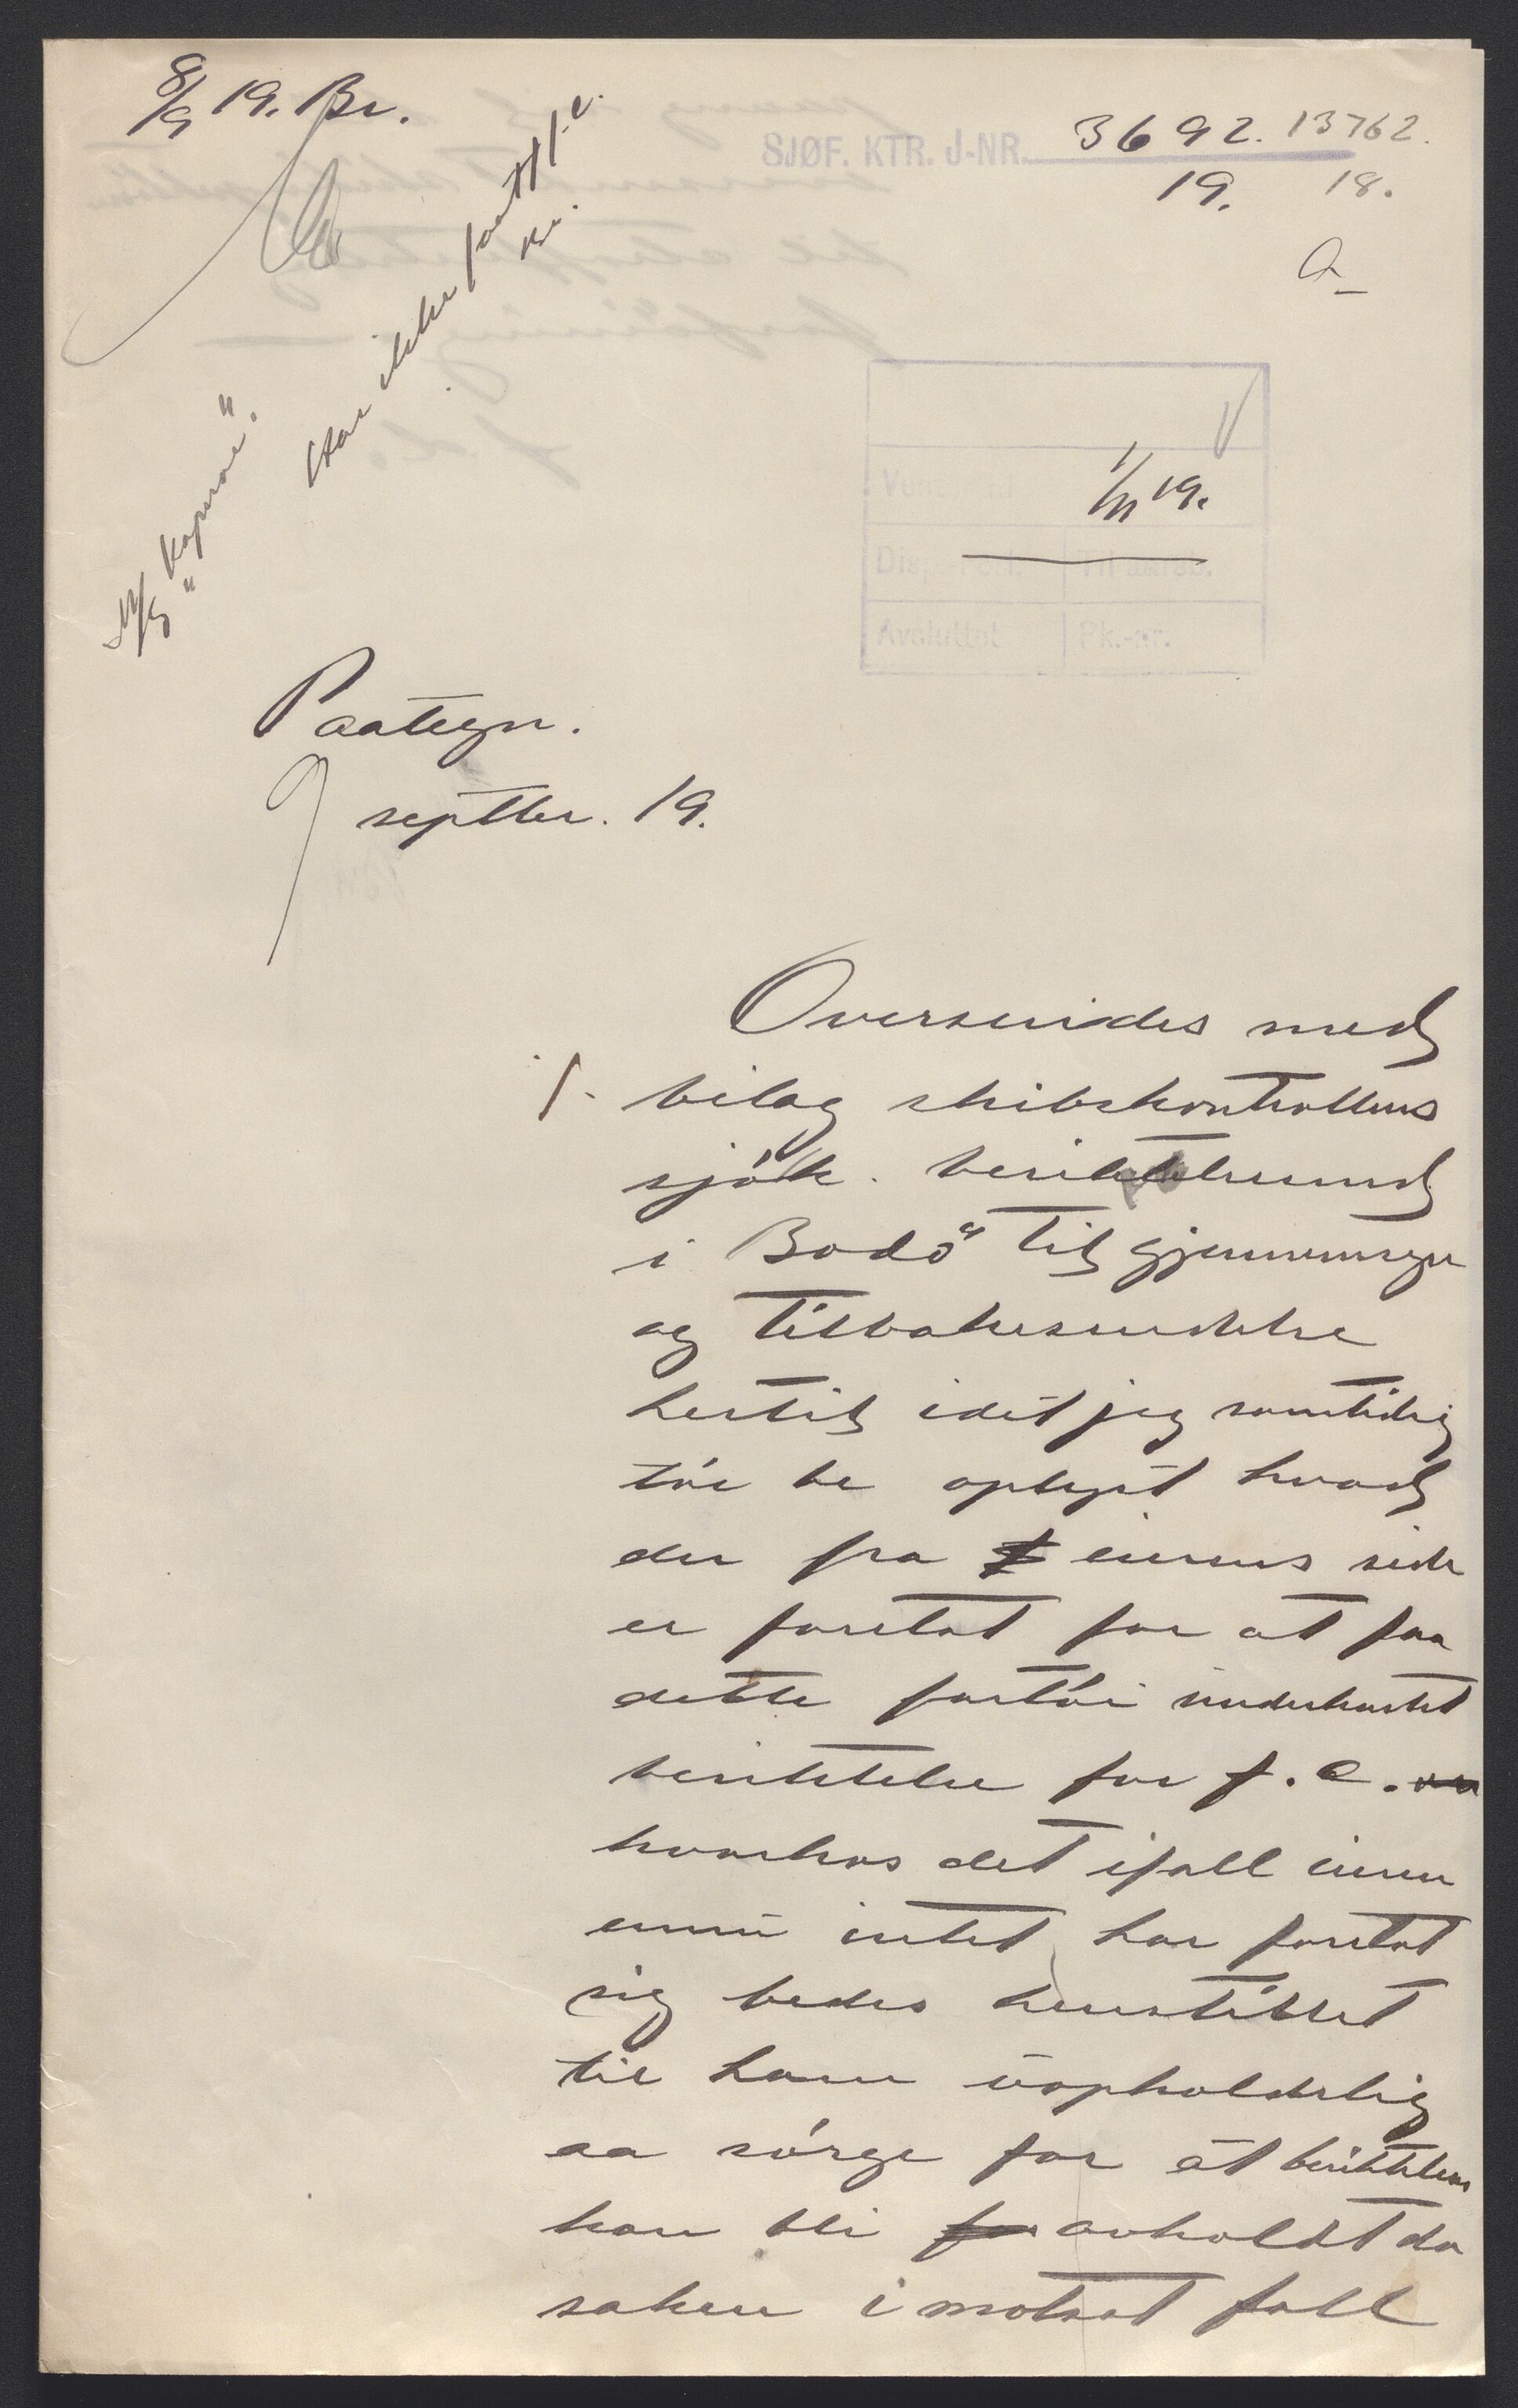 8/9 19. Br.
SJØF. KTR. J-NR. 3692. 13762.
19. 18.
a
Har ikke faat f.c.
Br.
M/S "Kapnor".
1/11 19.
Avsluttet Pk.-nr.
Paategn.
9 septbr. 19.
Oversendes med
bilag skibskontrollens
sjök. besiktelsesmd
i Bodö til gjennemsyn
og tilbakesendelse
hertil idet jeg samtidig
tör be oplyst hvad
der fra eierens side
er foretat for at faa
dette fartöi underkastet
besiktelse for f.c.
hvorhos det ifall eieren
ennu intet har foretat
sig bedes henstillet
til ham uopholdelig
aa sörge for at besiktelsen
kan bli avholdt da
saken i motsat fall